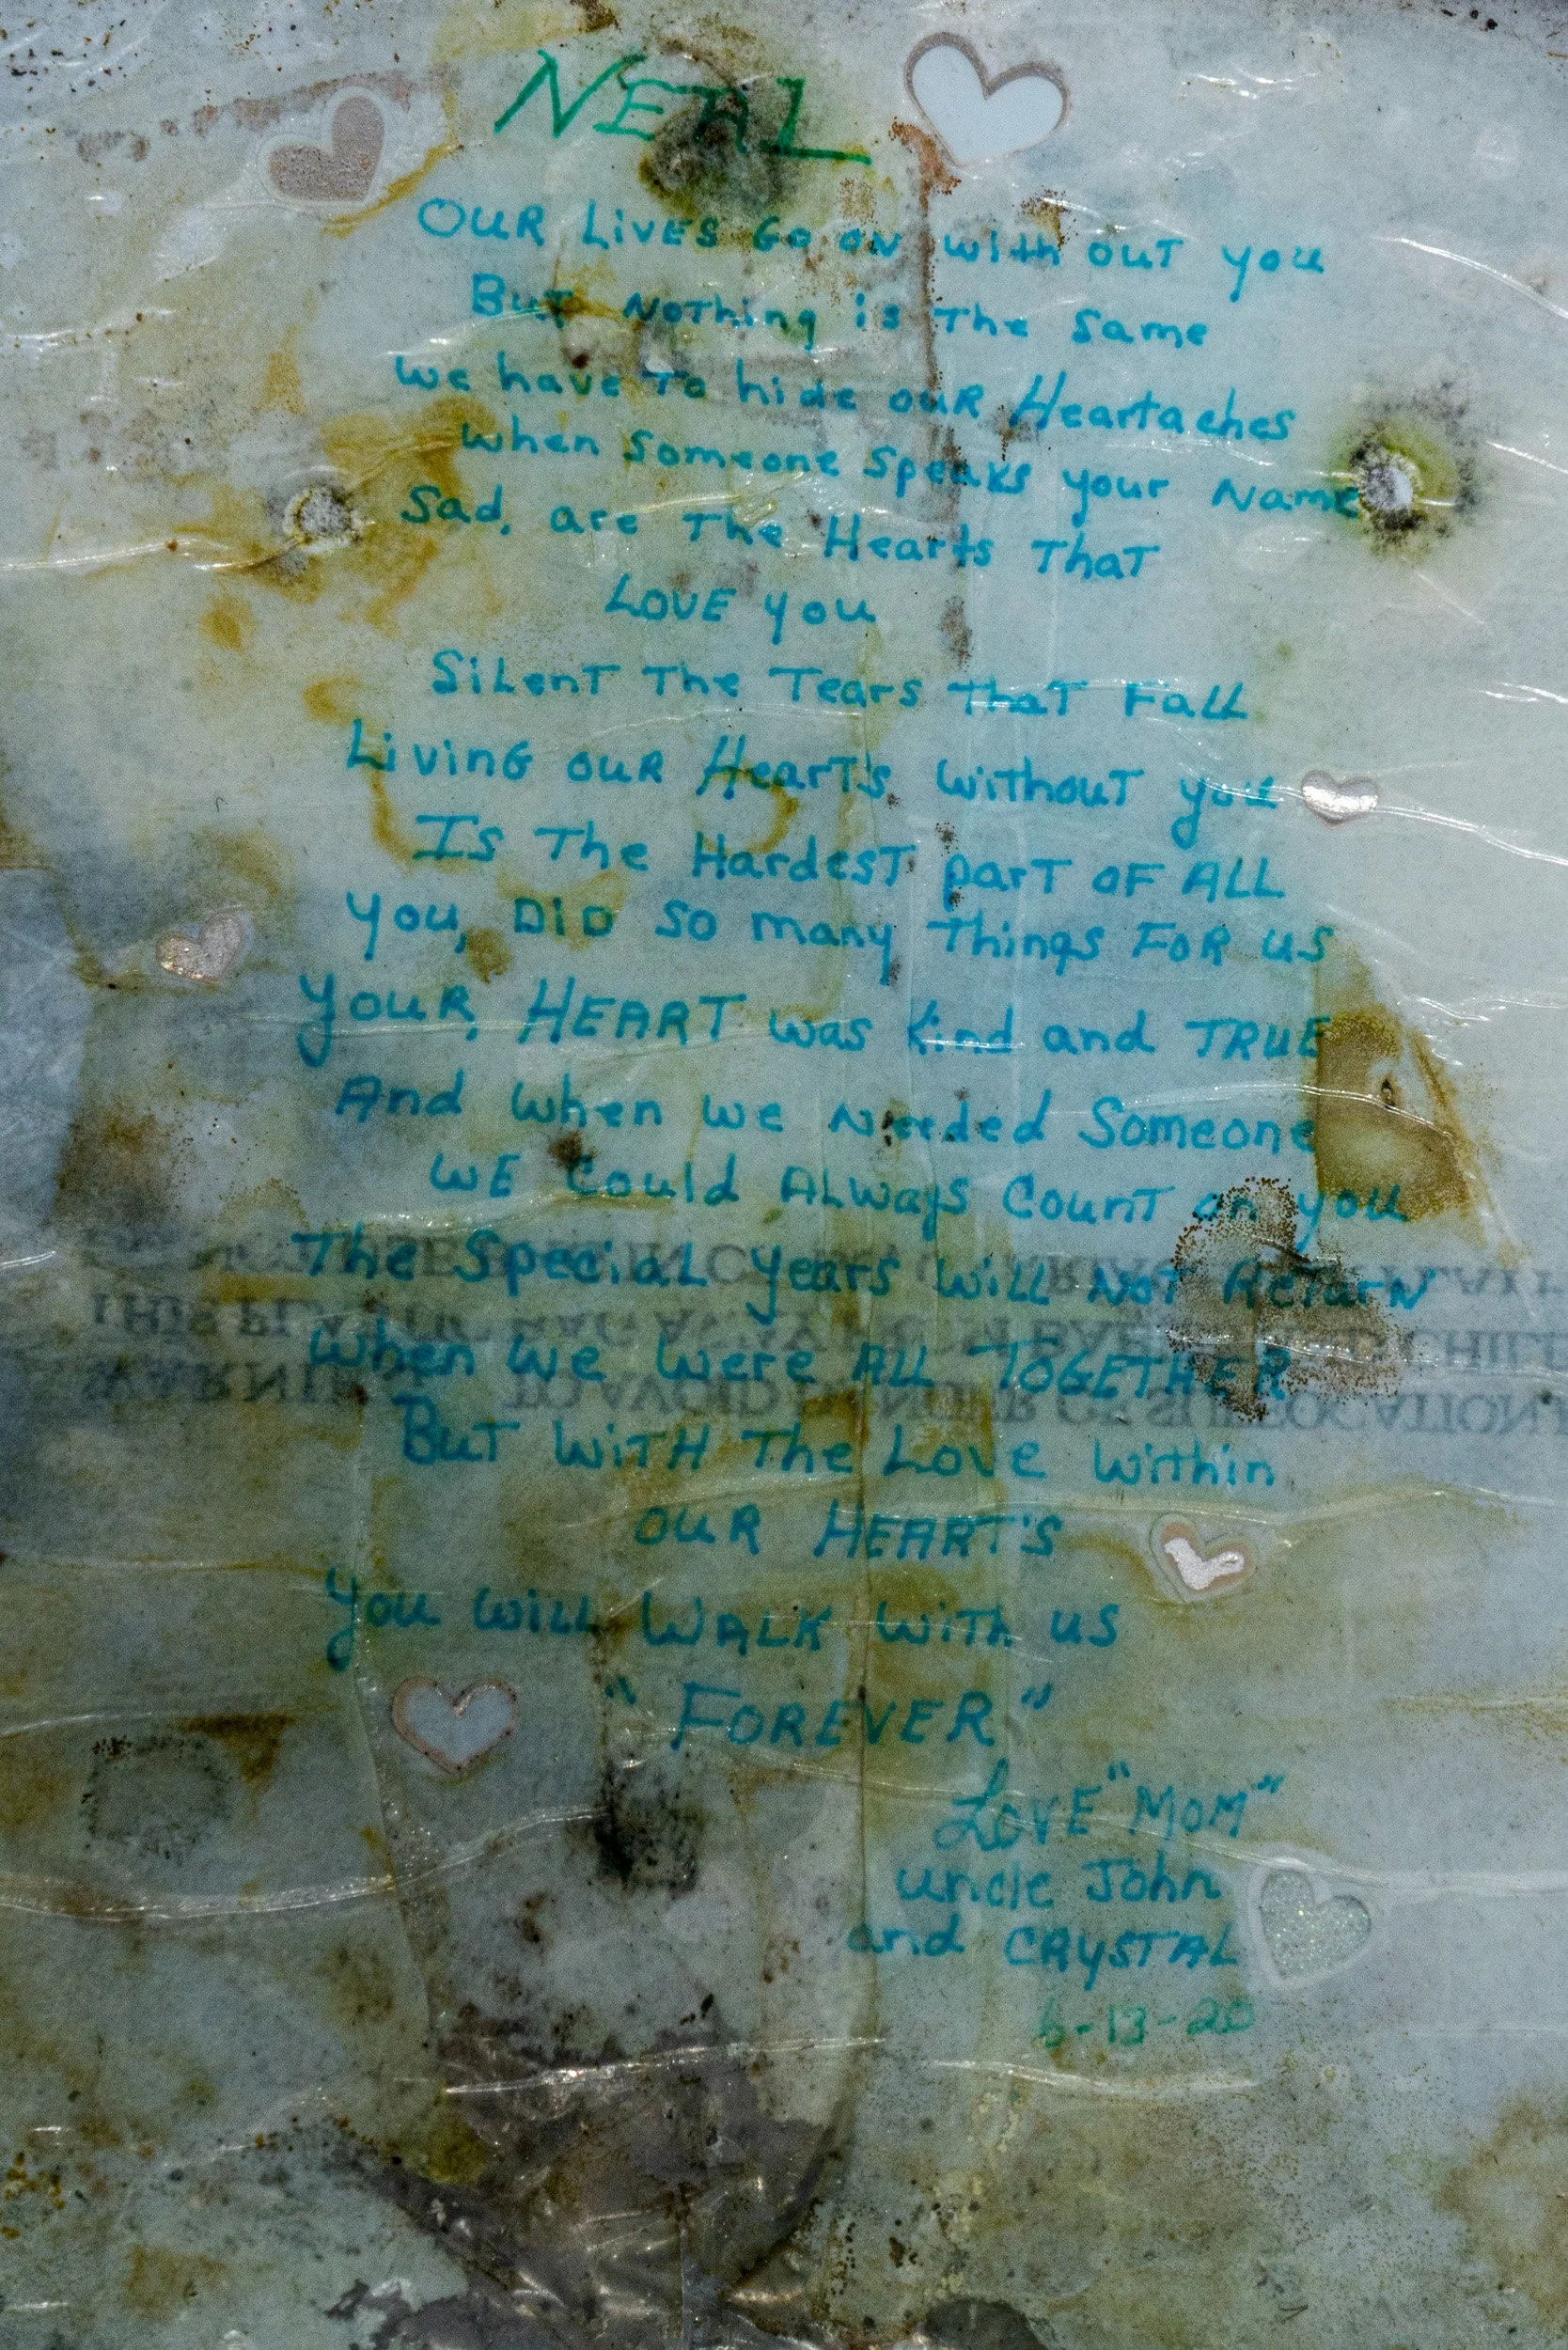 NEAL
OUR LiVES Go on with out you
But Nothing is The Same
we have To hide ouR Heartaches
when Someone Speaks your Name
Sad, are The Hearts ThaT
LOVE you
SiLenT The Tears ThaT FaLL
LivinG ouR HearT's withouT you
Is The HardesT parT OF ALL
You, DiD So many Things FoR us
YouR, HEART was Kind and TRUE
And when we Needed Someone
WE Could ALways CounT on you
The SpeciaL years will NoT ReTurN
when we were ALL TOGETHER
BuT WiTH The Love Within
ouR HEART'S
You wiLL WALK with us
"FOREVER"
LOVE "MOM"
uncle John
and CRYSTAL
6-13-20